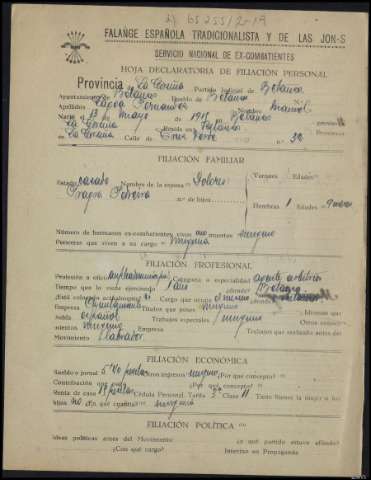 FALANGE ESPAÑOLA TRADICIONALISTA Y DE LAS JON-S
SERVICIO NACIONAL DE EX-COMBATIENTES
HOJA DECLARATORIA DE FILIACIÓN PERSONAL
Provincia de La Coruña Partido Judicial de Betanzos
Ayuntamiento de Betanzos Pueblo de Betanzos
Apellidos Fernandez Nombre Manuel
Nació el 13 Mayo de en Betanzos provincia
La Coruña Reside en Betanzos
La Coruña Calle de Cruz Verde n.º 32
FILIACIÓN FAMILIAR
Estado casado Nombre de la esposa Dolores Varones Edades
Pereira n.º de hijos Hembras 1 Edades
Número de hermanos ex-combatientes vivos uno muertos ninguno
Personas que viven a su cargo ninguna
FILIACIÓN PROFESIONAL
Profesión u oficio Categoría o especialidad agente
Tiempo que lo viene ejerciendo 1 año ¿dónde? Betanzos
¿Está colocado actualmente? si Cargo que ocupa el mismo ¿dónde?
Empresa Ayuntamiento Títulos que posee ninguno Idiomas que
habla español Trabajos especiales ninguno Otros conoci-
mientos ninguno Empresa Trabajos que realizaba antes del
Movimiento Labrador
FILIACIÓN ECONÓMICA
Sueldo o jornal pesetas Otros ingresos ninguno ¿Por qué concepto?
Contribución que paga ¿Por qué concepto?
Renta de casa 15 pesetas Cédula Personal Tarifa 3ª Clase 11 Tiene bienes la mujer o los
hijos no ¿En qué cuantía? ninguna
FILIACIÓN POLÍTICA
Ideas políticas antes del Movimiento ¿A qué partido estuvo afiliado?
¿Con qué cargo? Intervino en Propaganda